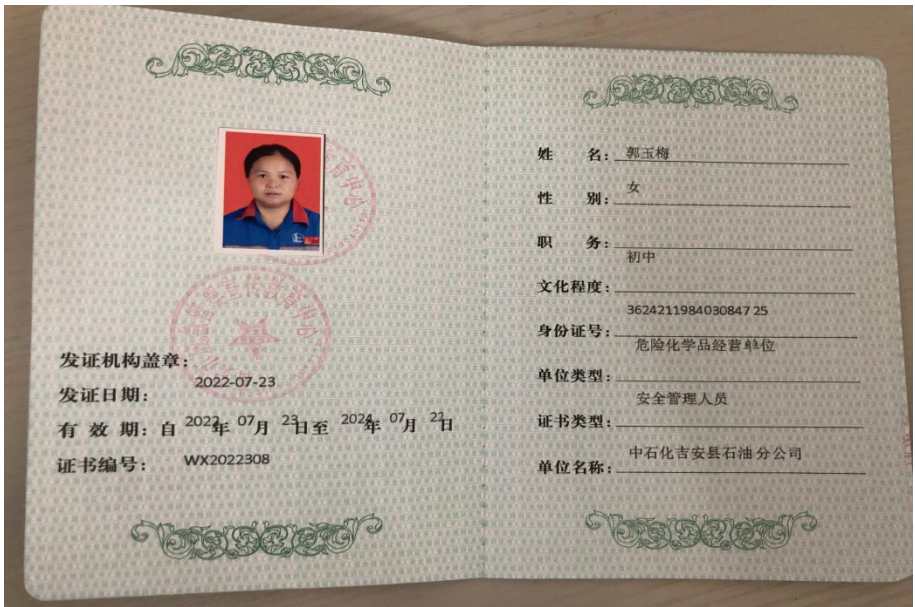 发证机构盖章：
发证日期： 2022-07-23
有 效 期：自 2022年 07月 23日至 2024年 07月 22日
证书编号： WX2022308
姓 名： 郭玉梅
性 别： 女
职 务：
文化程度： 初中
身份证号： 362421198403084725
单位类型： 危险化学品经营单位
证书类型： 安全管理人员
单位名称： 中石化吉安县石油分公司